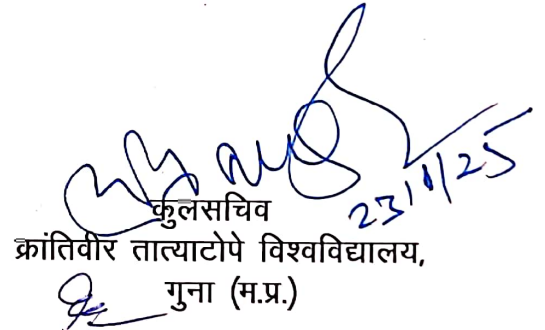 23/1/25
कुलसचिव
क्रांतिवीर तात्याटोपे विश्वविद्यालय,
गुना (म.प्र.)